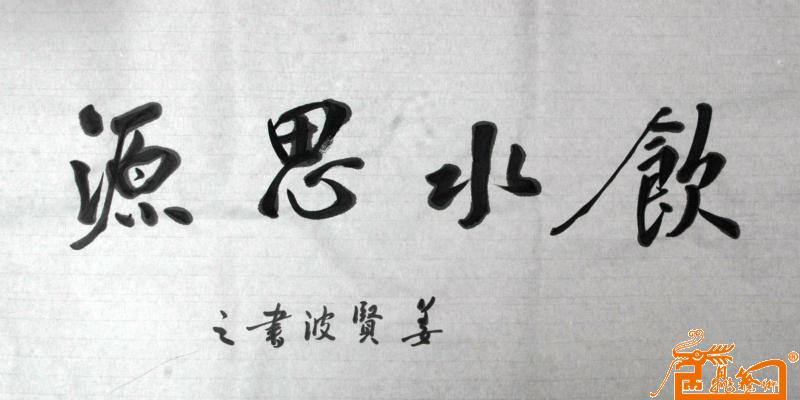 飲水思源
姜賢波書之